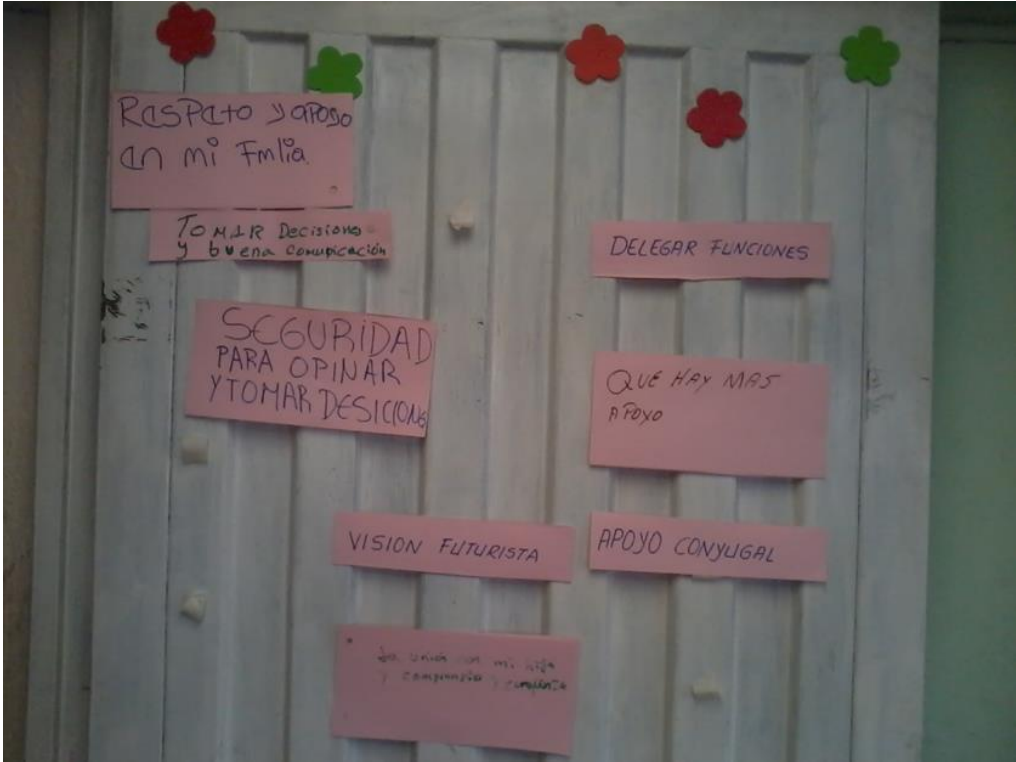 RESPETO Y APOYO
EN mi Fmlia
TOMAR Decisiones
y buena comunicación
SEGURIDAD
PARA OPINAR
Y TOMAR DESICIONS
VISION FUTURISTA
La unión con mi hija
y comprension y
DELEGAR FUNCIONES
QUE HAY MAS
APOYO
APOYO CONYUGAL